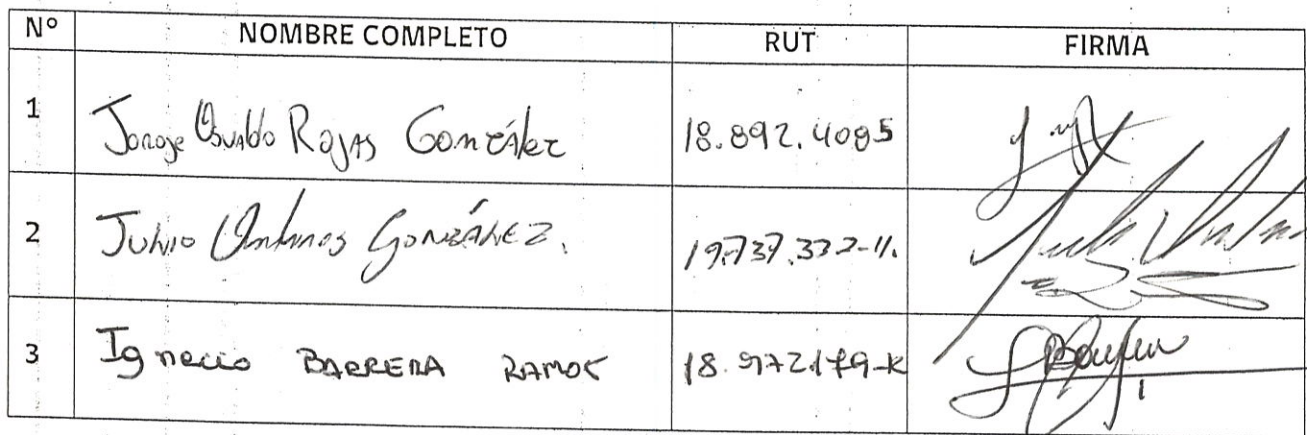 N° NOMBRE COMPLETO RUT FIRMA
1 Jorge Osvaldo Rojas González 18.892.4085
2 Julio González. 19.737.332-
3 Ignacio BARRERA RAMOS 18.972.179-K